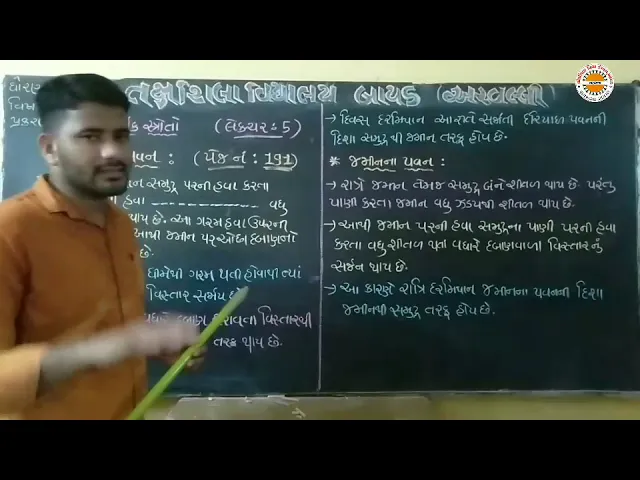 ધોરણ
તક્ષશિલા વિદ્યાલય બાયડ (અરવલ્લી)
વિષય
પ્રકર
સ્ત્રોતો (લેક્ચર : 5)
પવન : (પેજ નં : 191)
સમુદ્ર પરની હવા કરતા
હવા ---------- વધુ
થાય છે. આ ગરમ હવા ઉપરની
આથી જમીન પર ઓછા દબાણનો
છે.
ધીમેથી ગરમ થતી હોવાથી ત્યાં
વિસ્તાર સર્જાય છે.
વધારે દબાણ ધરાવતા વિસ્તારથી
તરફ થાય છે.
→ દિવસ દરમિયાન આ રીતે સર્જાતી દરિયાઇ પવનની
દિશા સમુદ્રથી જમીન તરફ હોય છે.
* જમીનના પવન :
→ રાત્રે જમીન તેમજ સમુદ્ર બંને શીતળ થાય છે. પરંતુ
પાણી કરતા જમીન વધુ ઝડપથી શીતળ થાય છે.
→ આથી જમીન પરની હવા સમુદ્રના પાણી પરની હવા
કરતા વધુ શીતળ થતા વધારે દબાણવાળા વિસ્તારનું
સર્જન થાય છે.
→ આ કારણે રાત્રિ દરમિયાન જમીનના પવનની દિશા
જમીનથી સમુદ્ર તરફ હોય છે.